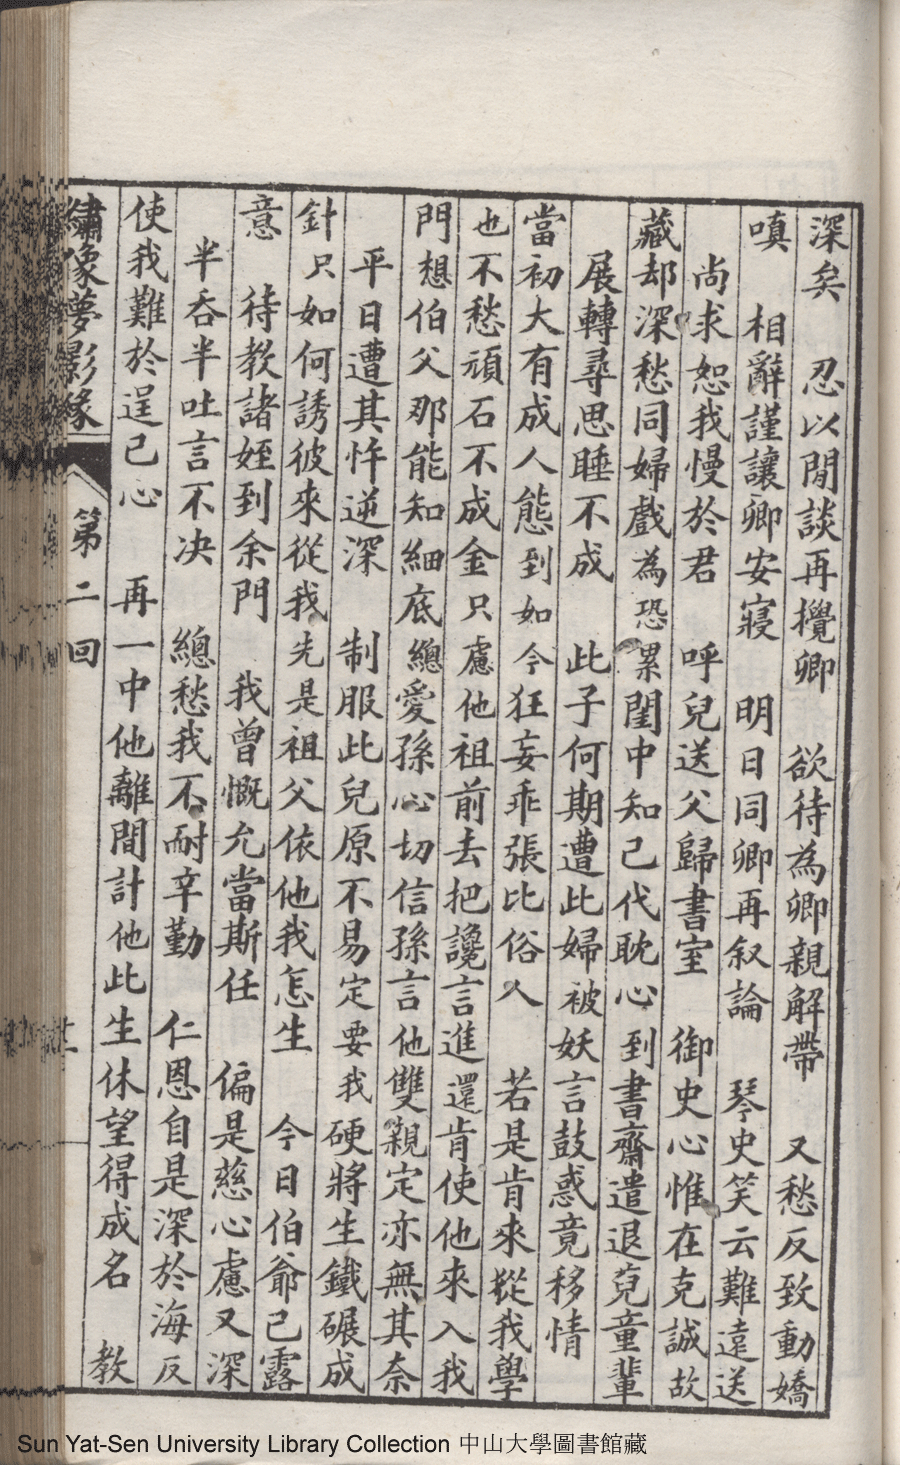 深矣　忍以閒談再攪卿　欲待為卿親解帶　又愁反致動嬌
嗔　相辭謹讓卿安寢　明日同卿再叙論　琴史笑云難遠送
尚求恕我慢於君　呼兒送父歸書室　御史心惟在克誠故
藏却深愁同婦戲為恐累閨中知己代耽心到書齋遣退莧童輩
展轉尋思睡不成　此子何期遭此婦被妖言鼓惑竟移情
當初大有成人態到如今狂妄乖張比俗人　若是肯來從我學
也不愁頑石不成金只慮他祖前去把讒言進還肯使他來入我
門想伯父那能知細底總愛孫心切信孫言他雙親定亦無其奈
平日遭其忤逆深　制服此兒原不易定要我硬將生鐵碾成
針只如何誘彼來從我先是祖父依他我怎生　今日伯爺已露
意　待教諸姪到余門　我曾慨允當斯任　偏是慈心慮又深
半吞半吐言不决　總愁我不耐辛勤　仁恩自是深於海反
使我難於逞己心　再一中他離間計他此生休望得成名　教
繡像夢影緣　第二回
Sun Yat-Sen University Library Collection 中山大學圖書館藏